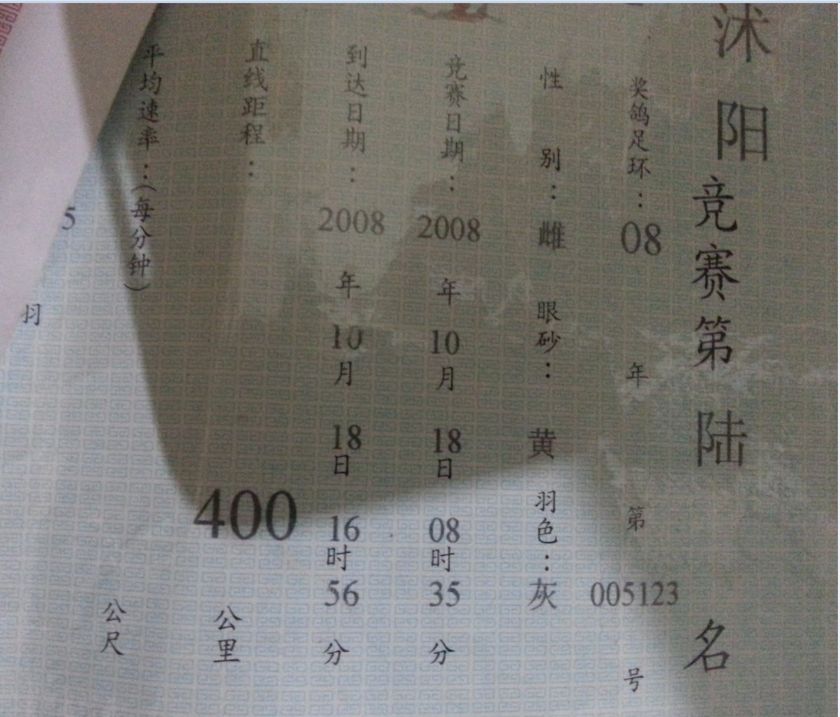 沭阳竞赛第陆名
奖鸽足环：08年第005123号
性别：雌 眼砂：黄 羽色：灰
竞赛日期：2008年10月18日08时35分
到达日期：2008年10月18日16时56分
直线距程：400公里
平均速率：（每分钟）公尺
5
羽